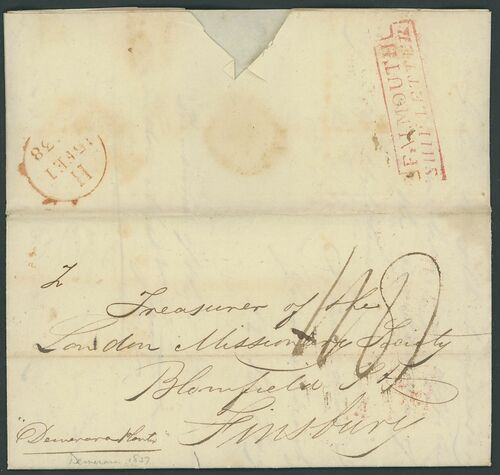 FALMOUTH
SHIP LETTER
H
15 FE 1
38
To
Treasurer of the
London Missionary Society
Blomfield St
Finsbury
Demerara 1837